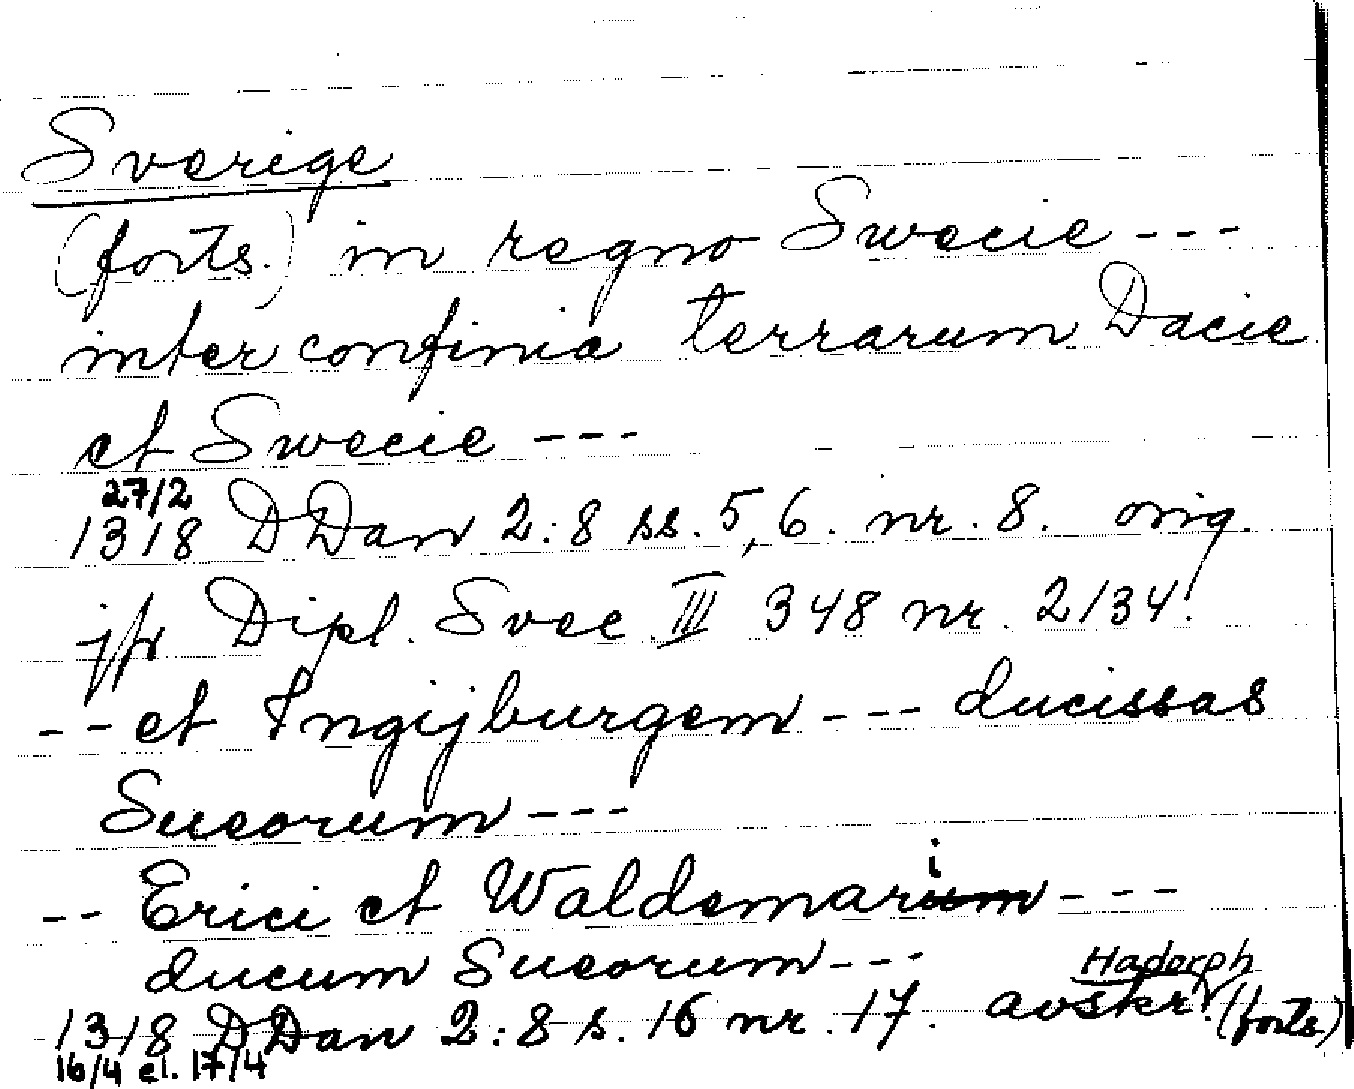 Sverige
(forts.) in regno Swecie ---
inter confinia terrarum Dacie
et Swecie ---
27/2
1318 DDan 2:8 ss. 5, 6. nr. 8. orig.
jfr Dipl. Svec III 348 nr. 2134!
-- et Ingijburgem --- ducissas
Sueorum ---
i
-- Erici et Waldemarium ---
ducum Sueorum ---
Hadorph
1318 DDan 2:8 s. 16 nr. 17. avskr. (forts.)
16/4 el. 17/4